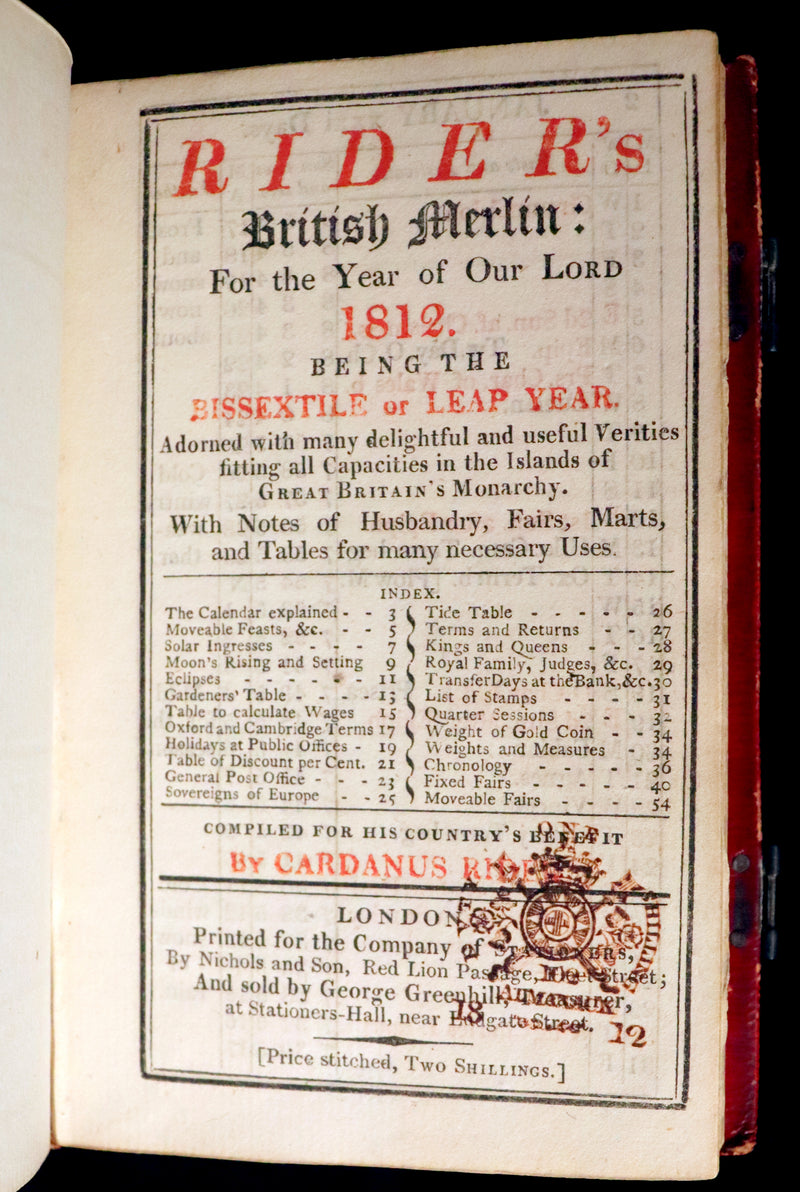 RIDER's
British Merlin:
For the Year of Our LORD
1812.
BEING THE
BISSEXTILE or LEAP YEAR.
Adorned with many delightful and useful Verities
fitting all Capacities in the Islands of
GREAT BRITAIN's Monarchy.
With Notes of Husbandry, Fairs, Marts,
and Tables for many necessary Uses.
INDEX.
The Calendar explained - - 3
Moveable Feasts, &c. - - 5
Solar Ingresses - - - - 7
Moon's Rising and Setting 9
Eclipses - - - - - - 11
Gardeners' Table - - - - 13
Table to calculate Wages 15
Oxford and Cambridge Terms 17
Holidays at Public Offices - 19
Table of Discount per Cent. 21
General Post Office - - - 23
Sovereigns of Europe - - 25
Tide Table - - - - - 26
Terms and Returns - - 27
Kings and Queens - - - 28
Royal Family, Judges, &c. 29
Transfer Days at the Bank, &c. 30
List of Stamps - - - - 31
Quarter Sessions - - - 32
Weight of Gold Coin - - 34
Weights and Measures - 34
Chronology - - - - - 36
Fixed Fairs - - - - - 40
Moveable Fairs - - - - 54
COMPILED FOR HIS COUNTRY'S BENEFIT
By CARDANUS RIDER
LONDON
Printed for the Company of STATIONERS,
By Nichols and Son, Red Lion Passage, Fleet Street;
And sold by George Greenhill, Treasurer,
at Stationers-Hall, near Ludgate Street.
[Price stitched, Two SHILLINGS.]
ONE
18 12